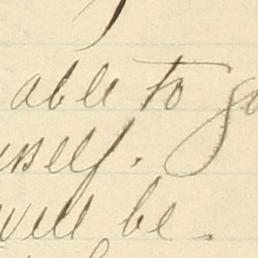 able to go
self.
will be.